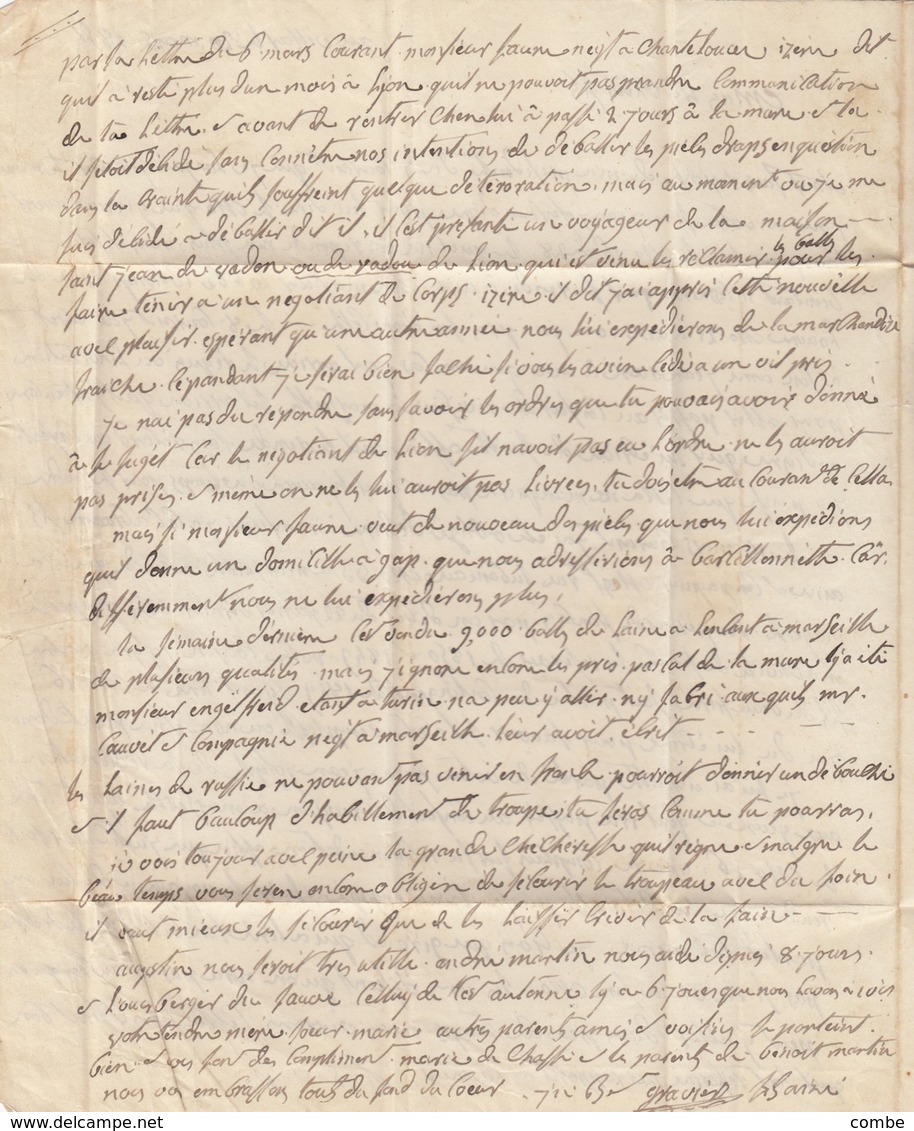 par sa Lettre du 6 mars Courant monsieur faure negt a Chantelouve izere dit
quil a resté plus dun mois a Lion quil ne pouvoit pas prandre Communication
de ta Lettre. & avant de rentrer Chen lui à passé 2 jours à La mure & la
il setoit délidé sans Connitre nos intentions de deballer les pieles draps en quéstion
dans la crainte quils souffreint quelque déteroration, mais au moment ou je me
suis délidé a déballer dit il, il cest presanté un voyageur de la maison
saint jean de vadon ou de vadou de Lion qui est venu les réclamer les balles pour les
faire tenir a un negotiant de Corps izere. il dit j'ai appris cette nouvelle
avec plaisir esperant qu'une autre année nous lui expédierons de la marchandise
fraiche. Cépandant je serai bien fachi si vous les avien cédé a un vil pris.
je nai pas du répondre sans savoir les ordres que tu pouvais avoir donné
à ce sugét Car le negotiant de Lion sil navoit pas eu Lordre ne les auroit
pas prises & meme on ne les lui auroit pas Livrees, tu dois etre au Courant de Cella
mais si monsieur faure veut de nouveau des pieles que nous lui expedions
quil donne un domicille a gap que nous adressirions à barcillonnette. Car
differemment nous ne lui expédierons plus,
la semaine dérniere cest vendu 9,000 balles de Laine a Lencant a marseille
de plusieurs qualités mais j'ignore encore les pris. pascal de la mure ly a été
monsieur engelfred etant a turin na peu y aller ny fabri auxquels mr.
Cauvet & Compagnie negt a marseille leur avoit écrit
les Laines de russie ne pouvant pas venir en france pourroit donner un débouché
& il faut beaucoup d'habillement de troupe, tu feras Comme tu pourras,
je vois toujour avec peine la grande Chechéresse quil regne & malgré le
béau temps vous seren encore obligén de sécourir le troupeau avec du foin.
il vaut mieux les sécourir que de les Laisser Crever de la faim
augustin nous seroit tres utille. andré martin nous aide depuis 8 jours.
& Louis berger du sauve celluy de cet autonne ly a 6 joues que nous Lavons
votre tendre mere soeur marie autres parents amis & voisins se porteint
bien & vous font des Compliment. marie de Chassi & les parents de benoit martin
nous vo embrassons touts du fond du Coeur. gravier Lainé